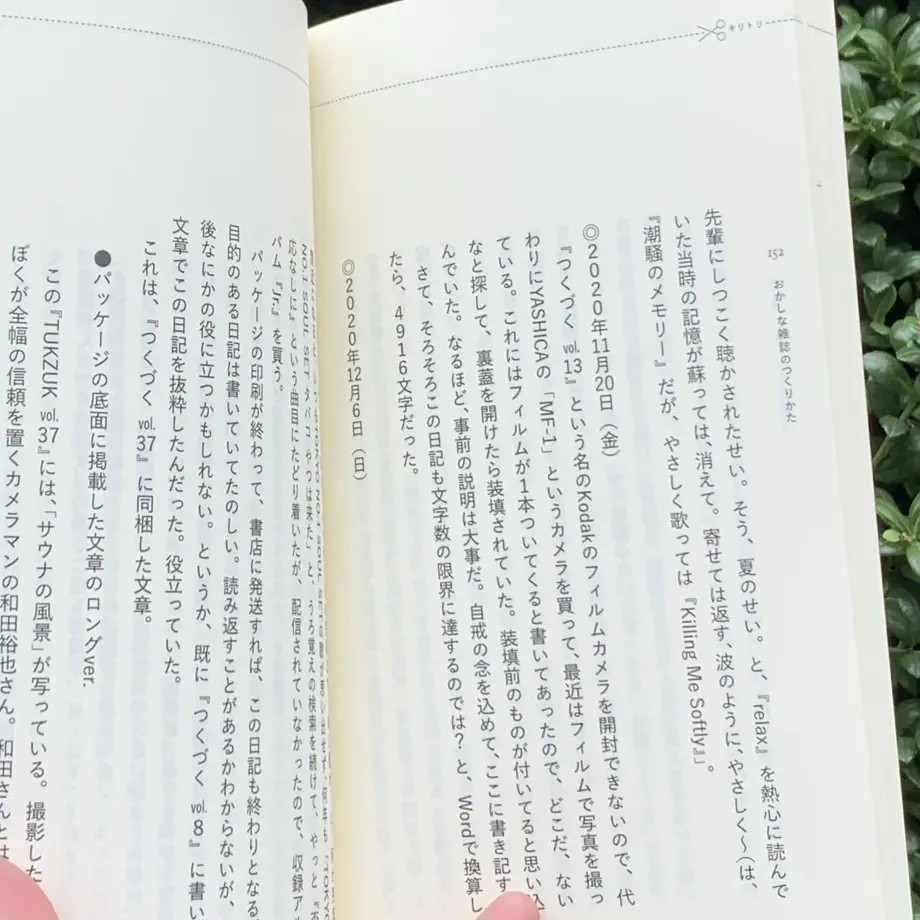 キリトリ
152
おかしな雑誌のつくりかた
先輩にしつこく聴かされたせい。そう、夏のせい。と、『relax』を熱心に読んで
いた当時の記憶が蘇っては、消えて。寄せては返す、波のように、やさしく〜(は、
『潮騒のメモリー』だが、やさしく歌っては『Killing Me Softly』」。
◎2020年11月20日(金)
『つくづく vol.13』という名のKodakのフィルムカメラを開封できないので、代
わりにYASHICAの「MF-1」というカメラを買って、最近はフィルムで写真を撮っ
ている。これにはフィルムが1本ついてくると書いてあったので、どこだ、ない
なと探して、裏蓋を開けたら装填されていた。装填前のものが付いてると思い込
んでいた。なるほど、事前の説明は大事だ。自戒の念を込めて、ここに書き記す
さて、そろそろこの日記も文字数の限界に達するのでは?と、Wordで換算し
たら、4916文字だった。
◎2020年12月6日(日)
NO.1 SOUL SET
応なしに』という曲目にたどり着いたが、配信されていなかったので、収録アル
バム『Jr.』を買う。
パッケージの印刷が終わって、書店に発送すれば、この日記も終わりとなる。
目的のある日記は書いていてたのしい。読み返すことがあるかわからないが、
後なにかの役に立つかもしれない。というか、既に『つくづく vol.8』に書い
文章でこの日記を抜粋したんだった。役立っていた。
これは、『つくづく vol.37』に同梱した文章。
●パッケージの底面に掲載した文章のロングver.
この『TUKZUK vol.37』には、「サウナの風景」が写っている。撮影した
ぼくが全幅の信頼を置くカメラマンの和田裕也さん。和田さんとは